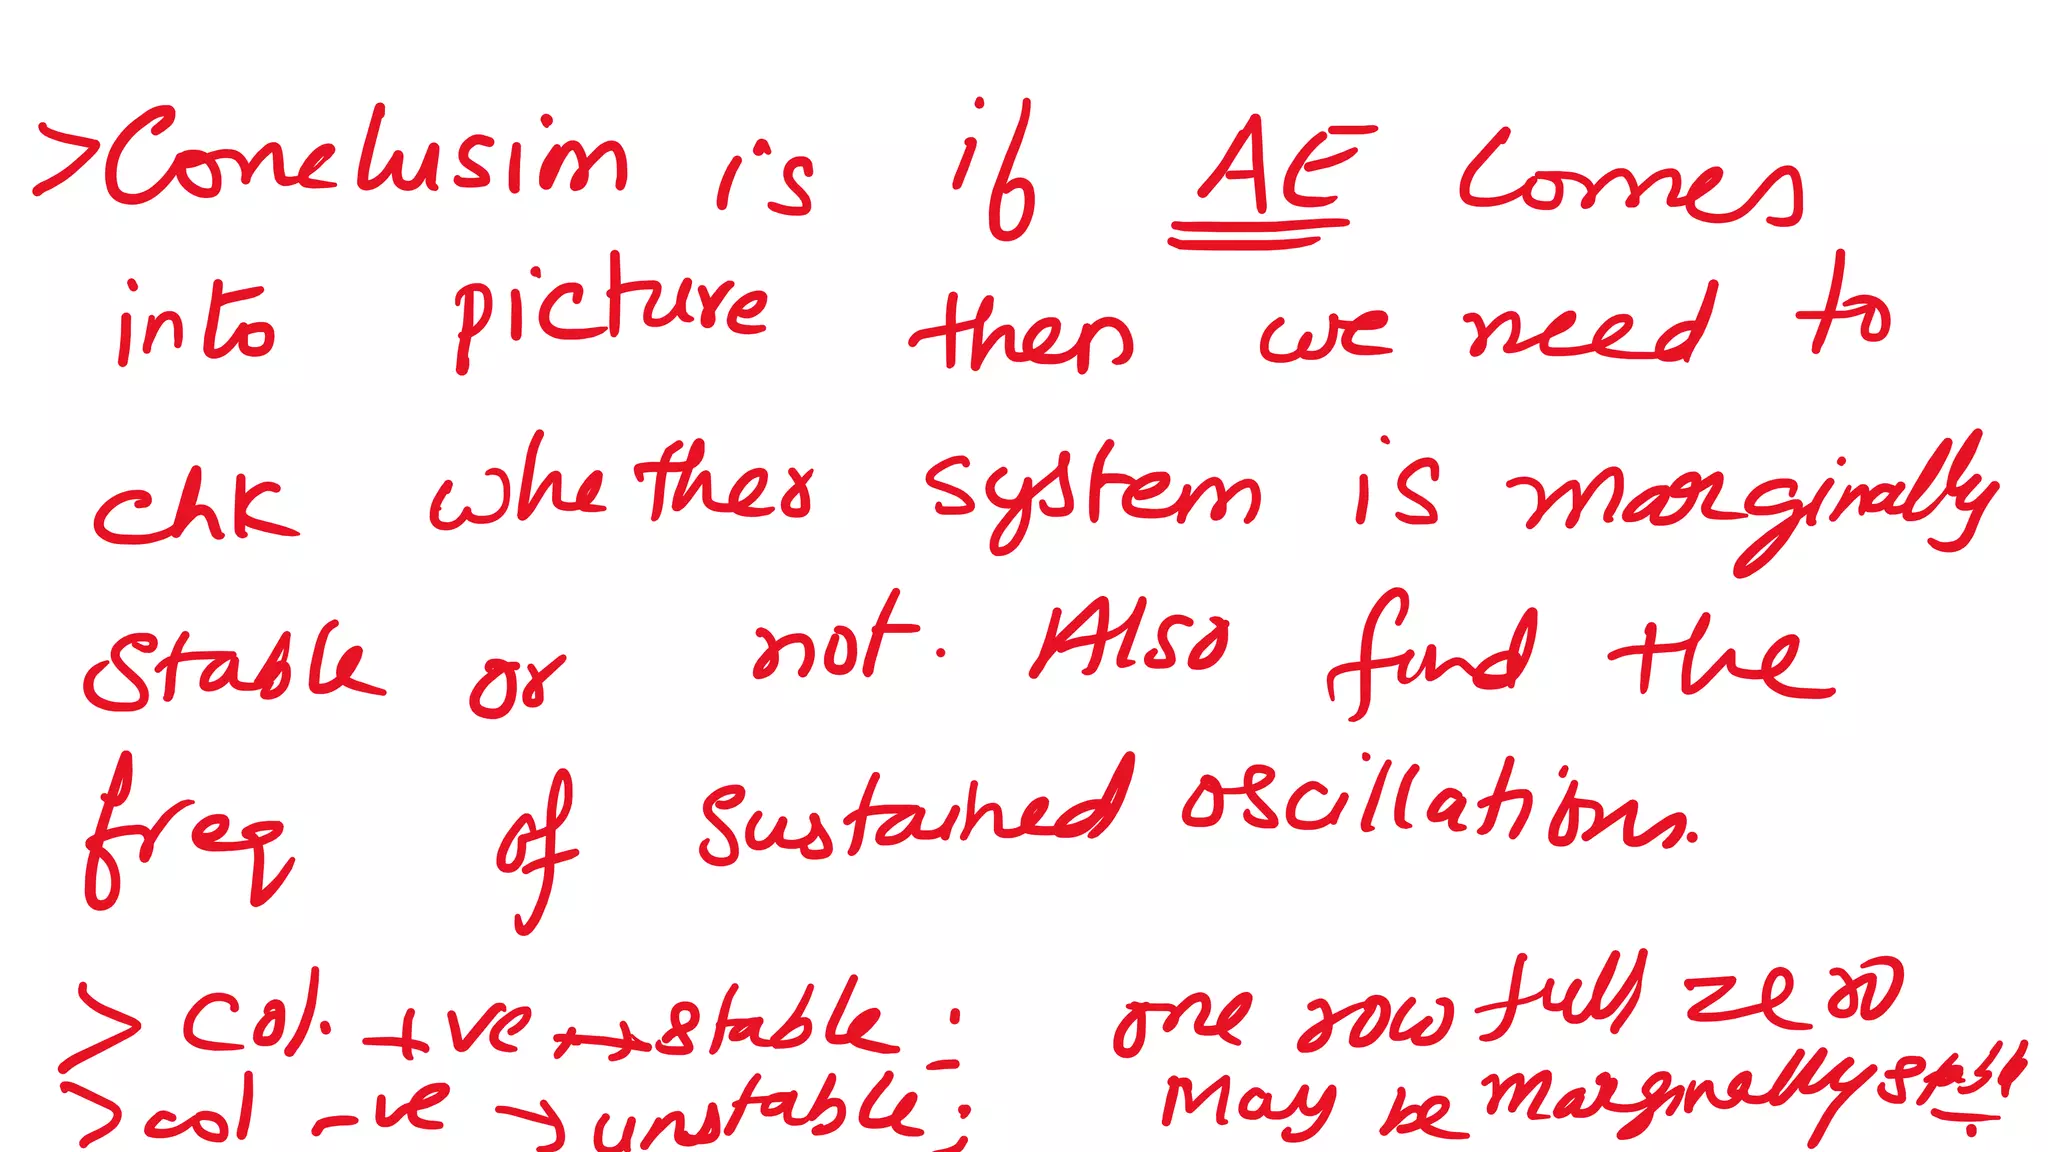 >Conclusion is if AE comes
into picture then we need to
chk whether system is marginally
stable or not. Also find the
freq of sustained oscillations.
> Col. +ve → stable ; one row full zero
> col -ve → unstable; May be marginally stable